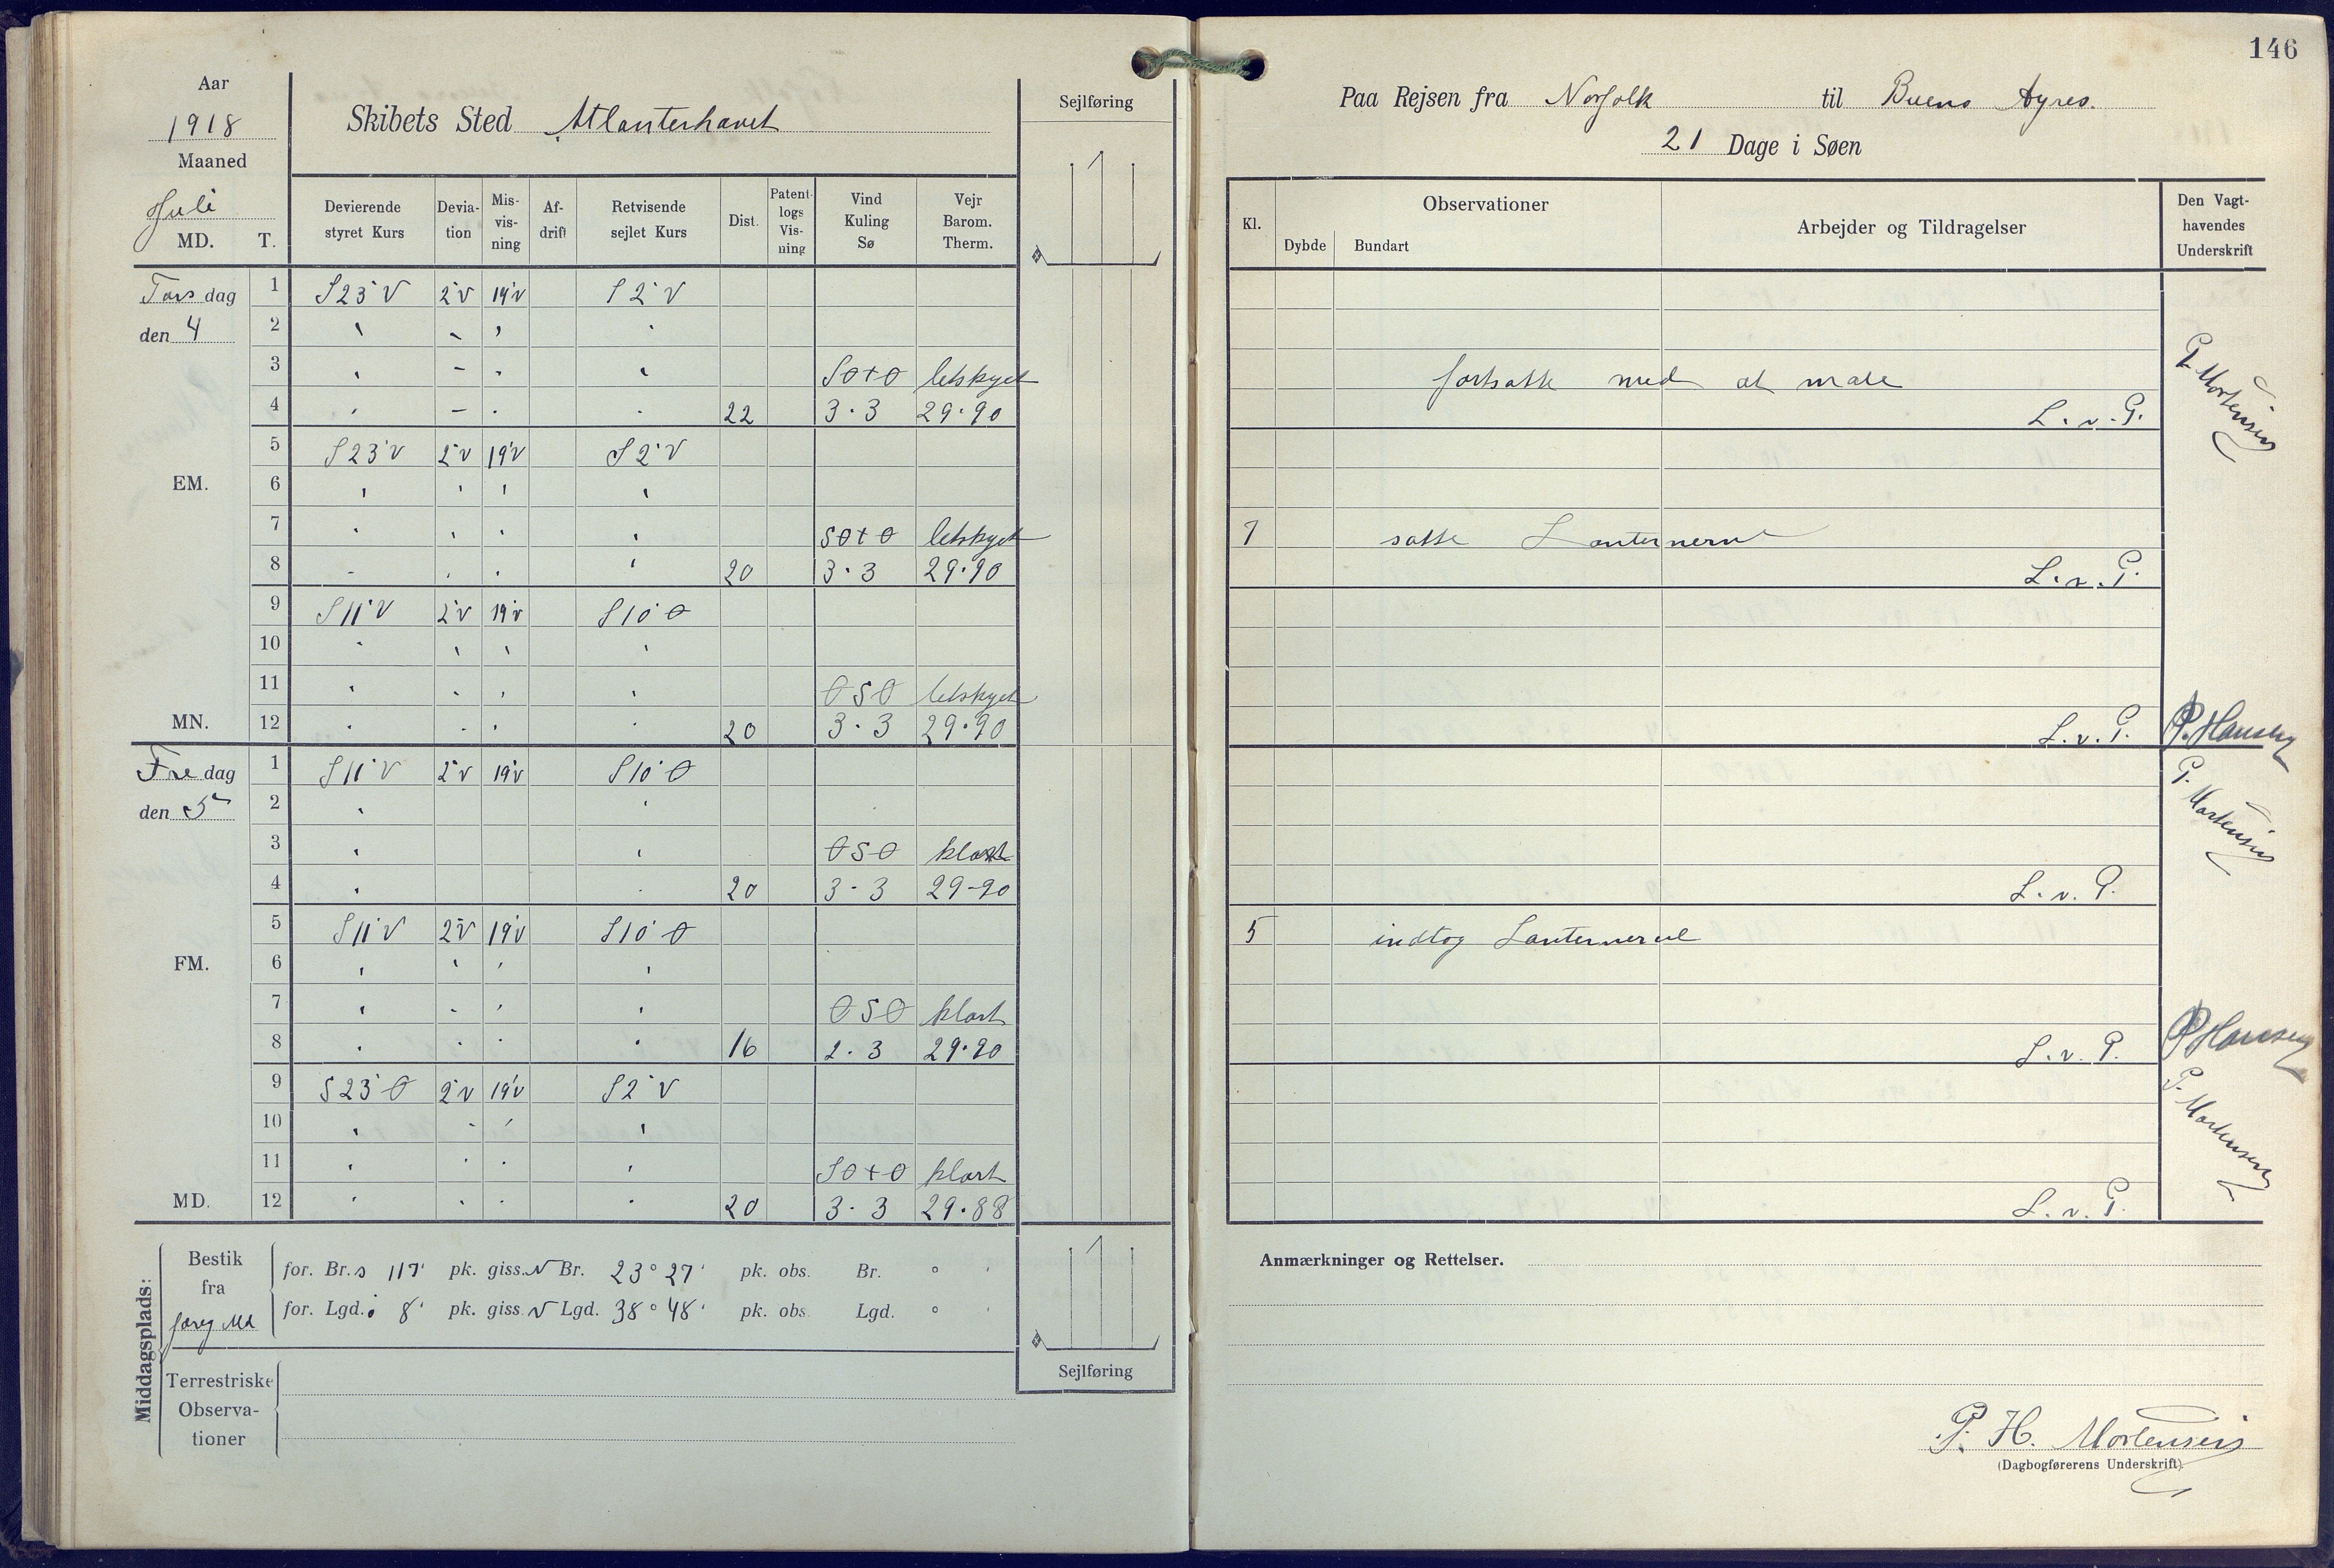 Aar
1918
Maaned
Juli
MD. T.
Skibets Sted Atlanterhavet
Sejlføring
Devierende styret Kurs | Devia-tion | Mis-vis-ning | Af-drift | Retvisende sejlet Kurs | Dist. | Patent-logs Vis-ning | Vind Kuling Sø | Vejr Barom. Therm.
Torsdag 1 S23°V 2°V 19°V S2°V
den 4 2 " " " "
3 " " " " SOtO letskyet
4 " " " " 22 3·3 29·90
5 S23°V 2°V 19°V S2°V
EM. 6 " " " "
7 " " " " SOtO letskyet
8 " " " " 20 3·3 29·90
9 S11°V 2°V 19°V S10°O
10 " " " "
11 " " " " OSO letskyet
MN. 12 " " " " 20 3·3 29·90
Fredag 1 S11°V 2°V 19°V S10°O
den 5 2 " "
3 " " OSO klart
4 " " 20 3-3 29-90
5 S11°V 2°V 19°V S10°O
FM. 6 " " " "
7 " " " " OSO klart
8 " " " " 16 2·3 29·90
9 S23°O 2°V 19°V S2°V
10 " " " "
11 " " " " SOtO klart
MD. 12 " " " " 20 3·3 29·88
Middagsplads:
Bestik fra forrig Md
for. Br. s 117' pk. giss. N Br. 23° 27' pk. obs. Br. ° '
for. Lgd. 8' pk. giss. V Lgd. 38° 48' pk. obs. Lgd. ° '
Sejlføring
Terrestriske
Observa-
tioner
146
Paa Rejsen fra Norfolk til Buens Ayres.
21 Dage i Søen
Kl. | Observationer | Dybde | Bundart | Arbejder og Tildragelser | Den Vagt-havendes Underskrift
fortsatte med at male
L. v. P. P Mortensen
7 satte Lanternerne
L. v. P.
L. v. P. P. Hansen
P. Mortensen
L. v. P.
5 indtog Lanternerne
L. v. P. P Hansen
P. Mortensen
L. v. P.
Anmærkninger og Rettelser.
P. H. Mortensen
(Dagbogførerens Underskrift).